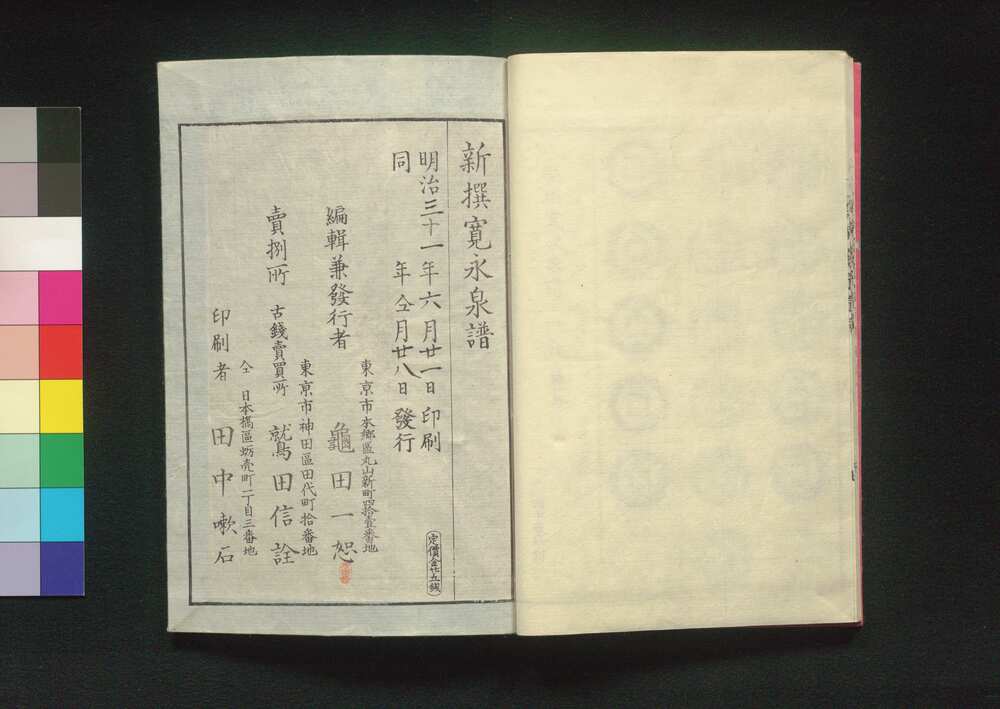 新撰寛永泉譜
明治三十一年六月廿一日印刷
同年仝月廿八日發行
定價金廿五錢
編輯兼發行者
東京市本鄉區丸山新町四拾壹番地
龜田一恕
賣捌所
古錢賣買所
東京市神田區田代町拾番地
鷲田信詮
印刷者
仝 日本橋區蛎壳町一丁目三番地
田中嗽石